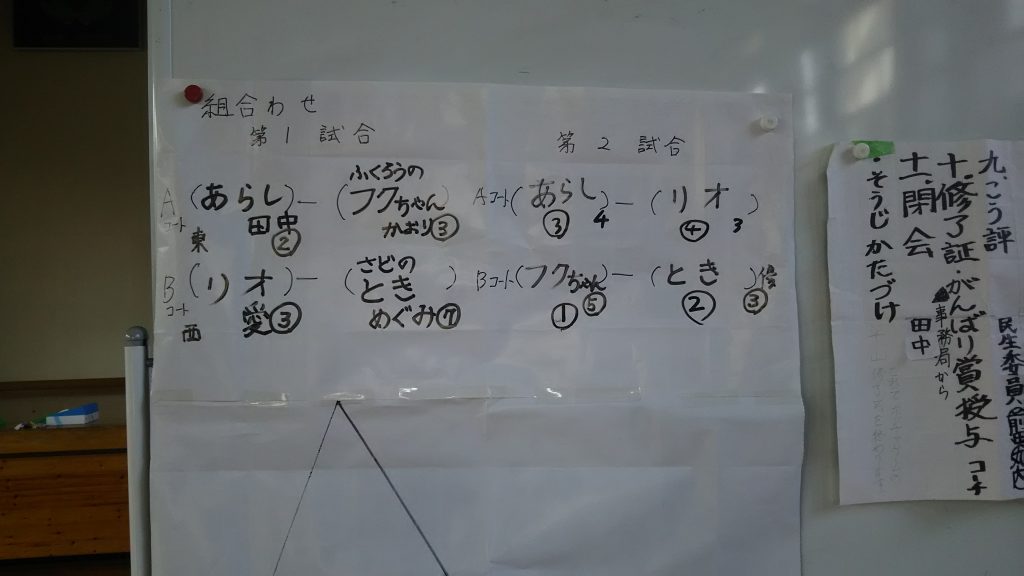 組合わせ
第1試合
第2試合
Aコート 東 (あらし) 田中 ② ― (ふくろうの フクちゃん かおり ③)
Bコート 西 (リオ) 愛 ③ ― (さどの とき) めぐみ ⑦
Aコート (あらし) ③ 4 ― (リオ) ④ 3
Bコート (フクちゃん) ① ⑤ ― (とき) ② ③
九、こう評
民生委員
十、修了証・がんばり賞授与 コーチ
事務局から
十一、閉会
田中
・そうじかたづけ